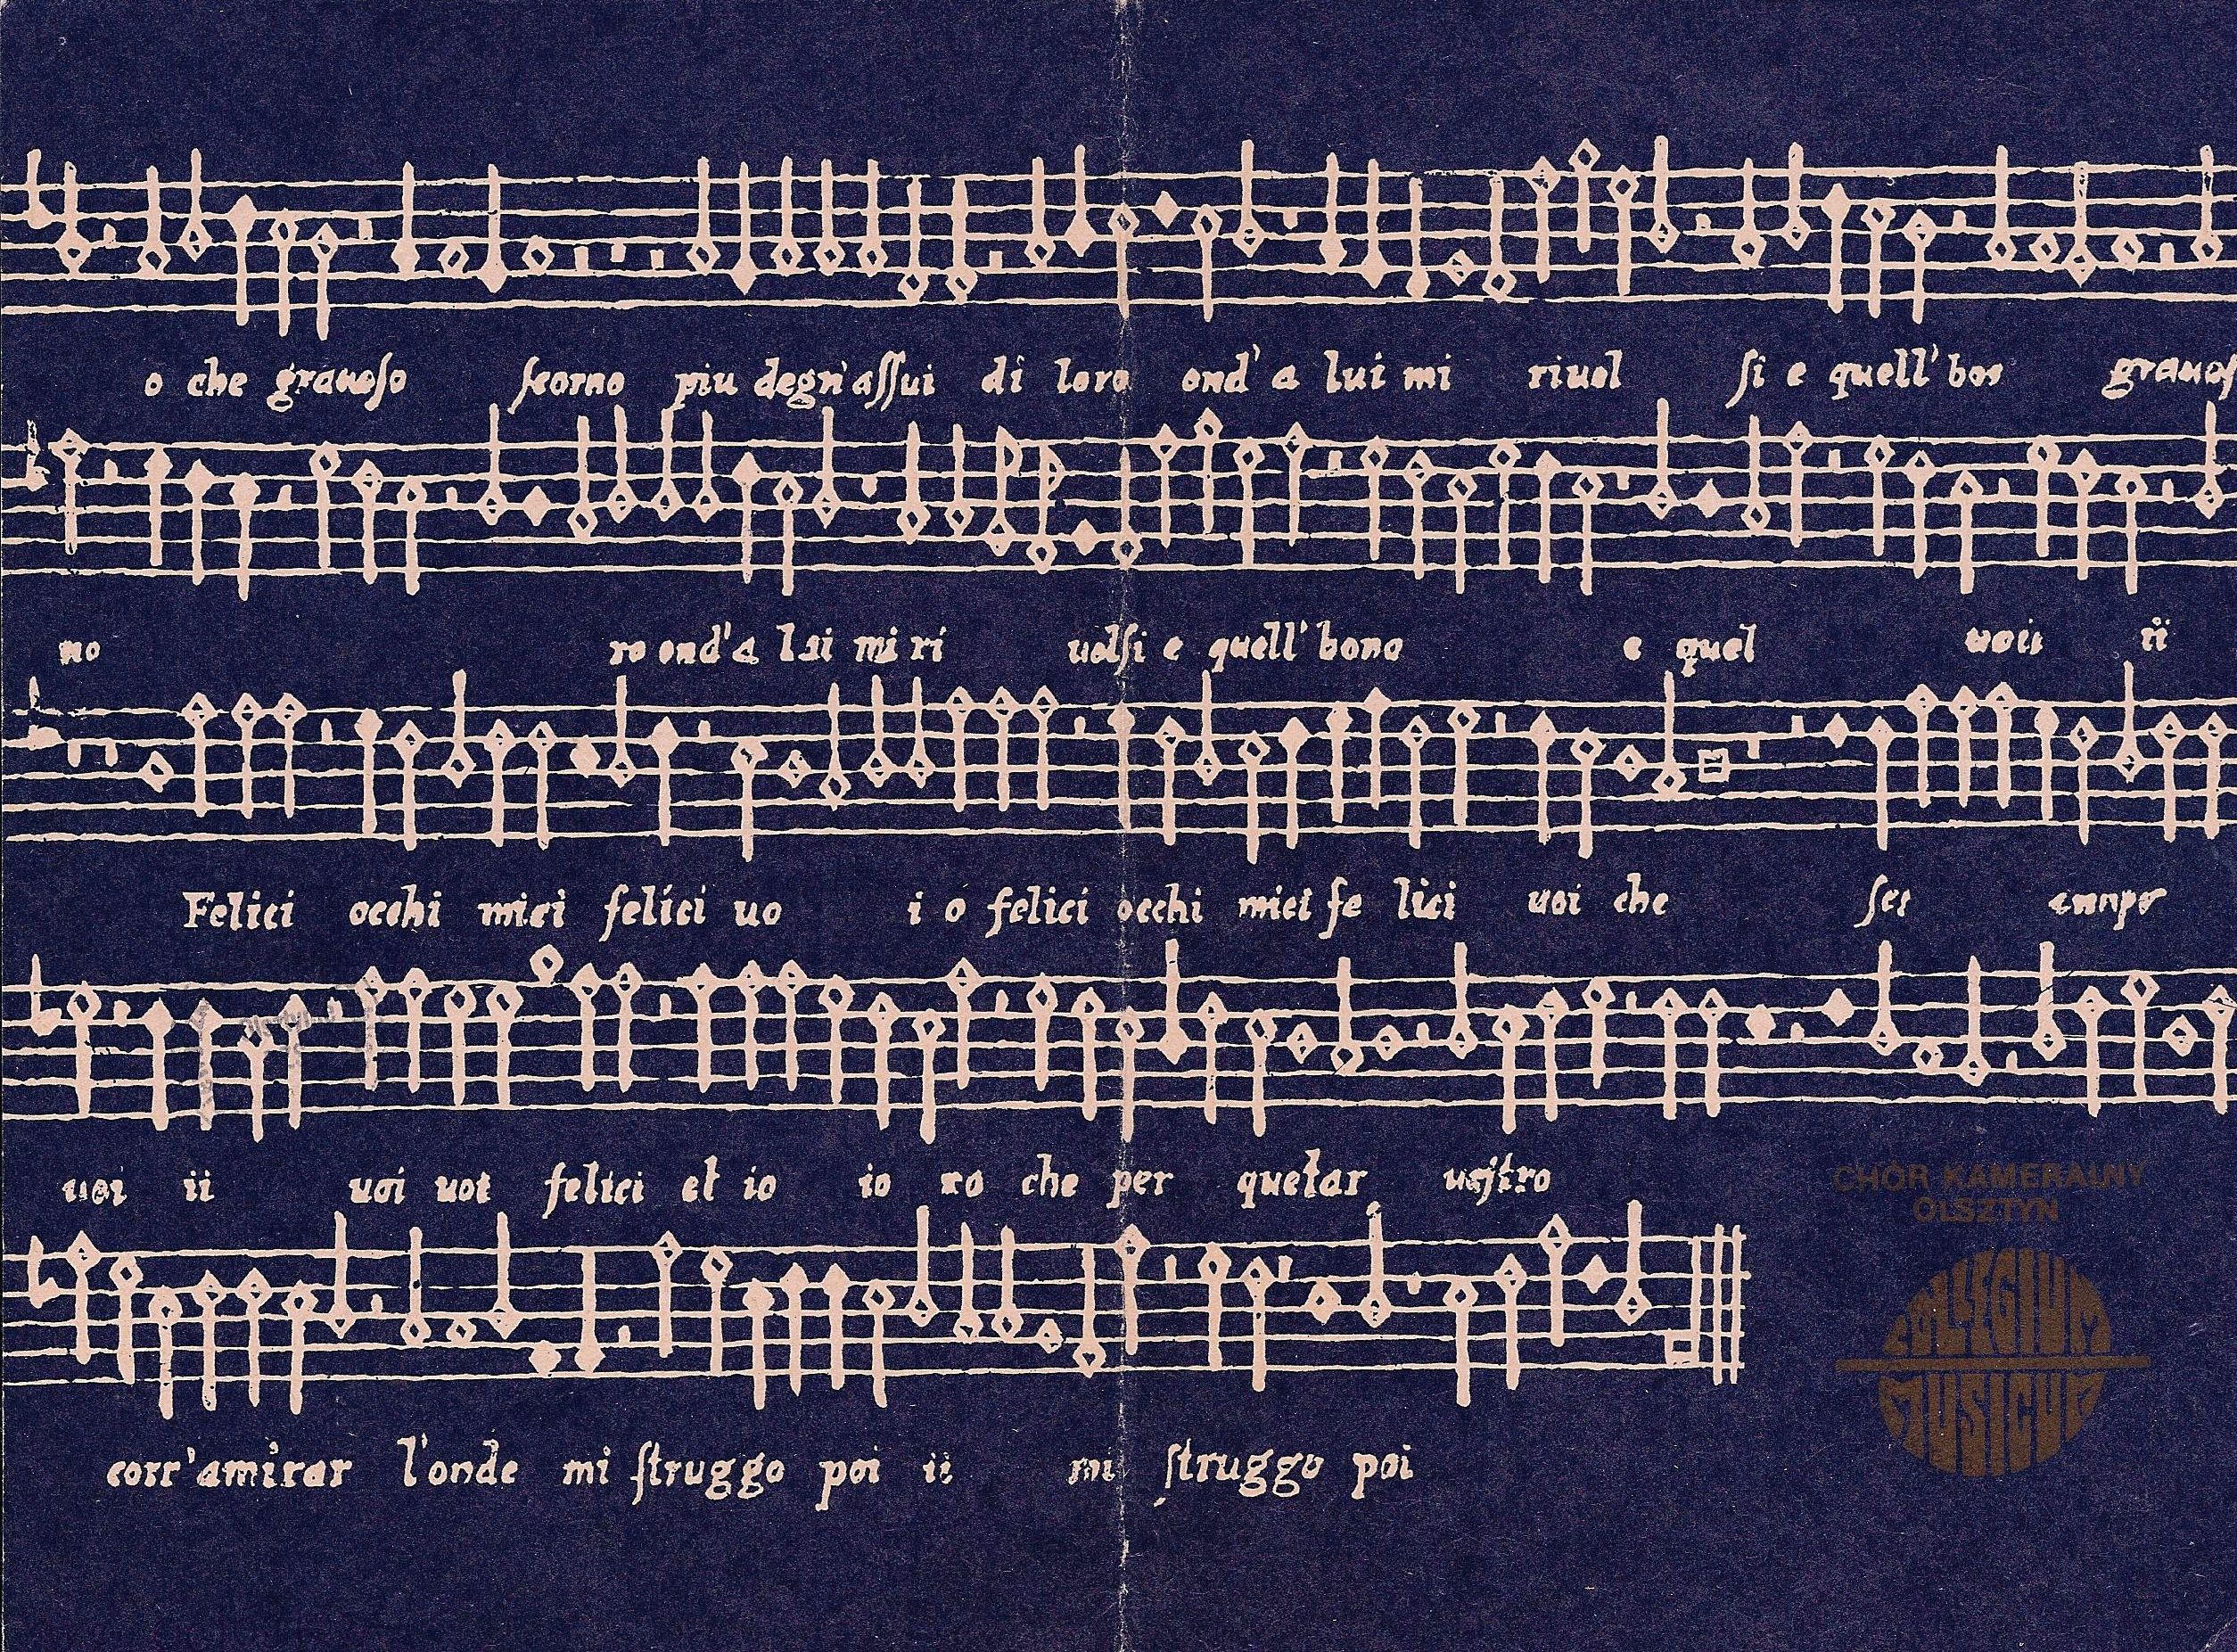 o che grauoso scorno piu degn'assui di loro ond'a lui mi riuol si e quell'bon grauos
no ro ond'a lui mi ri uolsi e quell'bono e quel uoii ii
Felici occhi miei felici uo i o felici occhi miei fe lici uoi che
uoi ii uoi uoi felici et io io ro che per quetar uostro
CHÓR KAMERALNY
OLSZTYN
COLLEGIUM
MUSICUM
corr'amirar l'onde mi struggo poi ii mi struggo poi